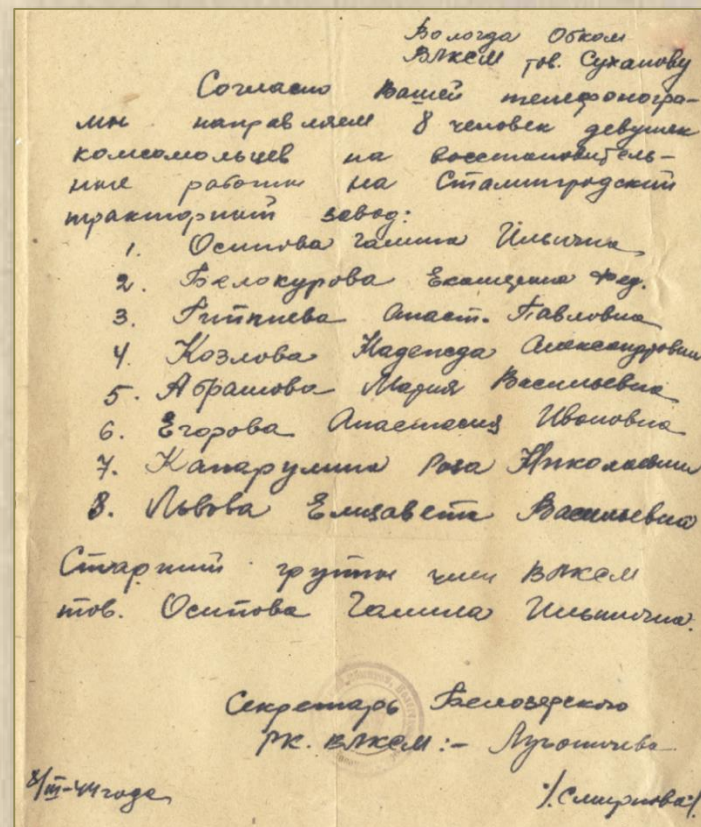 Вологда Обком
ВЛКСМ тов. Суханову
Согласно Вашей телефоногра-
мы направляем 8 человек девушек
комсомольцев на восстановитель-
ные работы на Сталинградский
тракторный завод:
1. Осипова Галина Ильинична
2. Белокурова Екатерина Фед.
3. Анаст. Павловна
4. Козлова Надежда Александровна
5. Абрашова Мария Васильевна
6. Егорова Анастасия Ивановна
7. Капарулина Роза Николаевна
8. Львова Елизавета Васильевна
Старший группы член ВЛКСМ
тов. Осипова Галина Ильинична.
Секретарь Белозерского
РК. ВЛКСМ:-
8/III-44 года
/Смирнова/